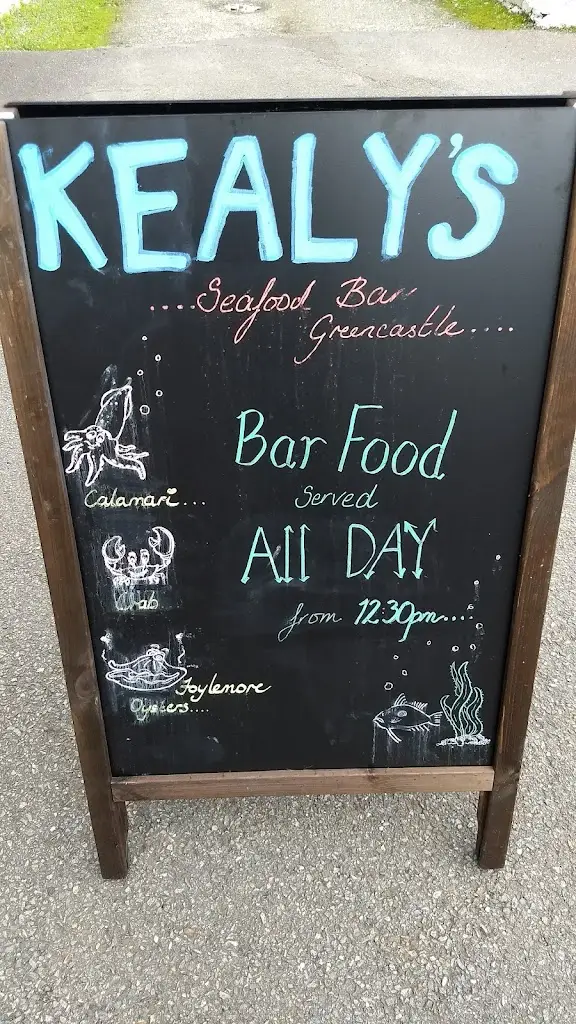 KEALY'S
....Seafood Bar
Greencastle....
Bar Food
Served
All DAY
from 12:30pm....
Calamari...
Crab
Foylemore
Oysters....